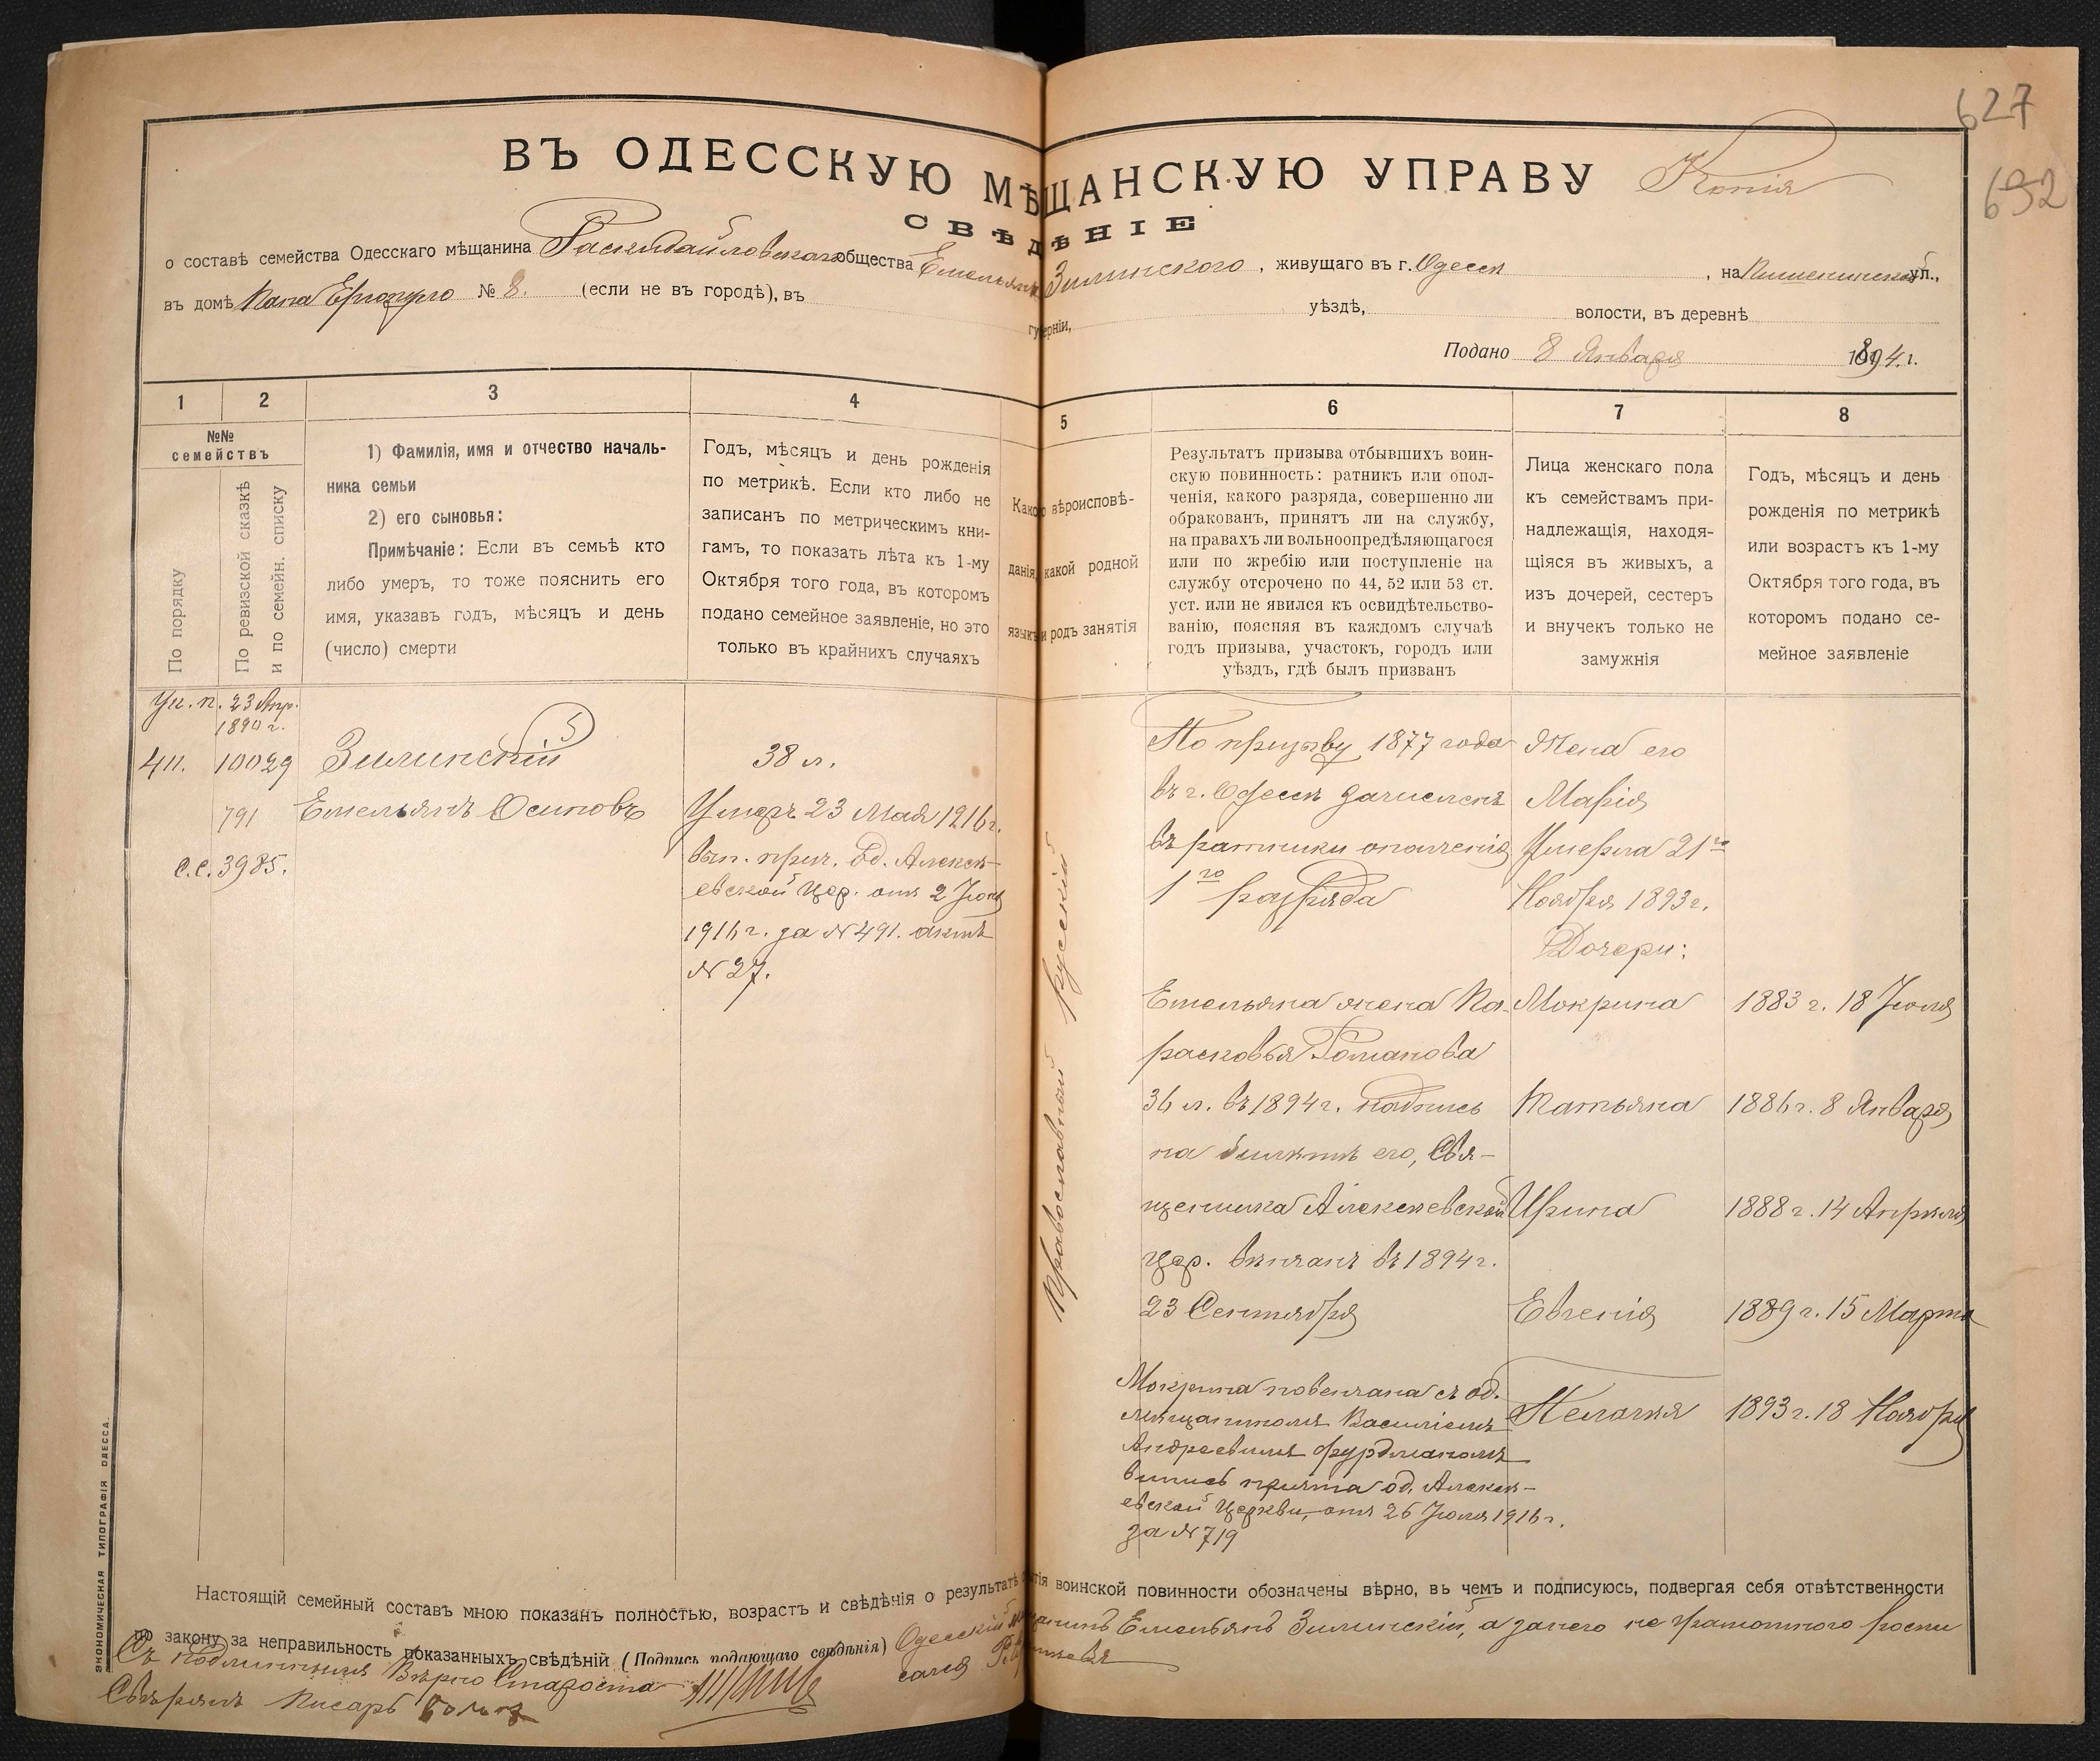 627
632
Копія
ВЪ ОДЕССКУЮ МѢЩАНСКУЮ УПРАВУ
СВѢДѢНІЕ
о составѣ семейства Одесскаго мѣщанина Раскидайловскаго общества Емельяна Зилинского, живущаго въ г. Одессѣ, на ул.,
въ домѣ № 8. (если не въ городѣ), въ губерніи, уѣздѣ, волости, въ деревнѣ
Подано 8 Января 1894 г.
1
2
3
4
5
6
7
8
№№
семействъ
По порядку
По ревизской сказкѣ
и по семейн. списку
1) Фамилія, имя и отчество началь-
ника семьи
2) его сыновья:
Примѣчаніе: Если въ семьѣ кто
либо умеръ, то тоже пояснить его
имя, указавъ годъ, мѣсяцъ и день
(число) смерти
Годъ, мѣсяцъ и день рожденія
по метрикѣ. Если кто либо не
записанъ по метрическимъ кни-
гамъ, то показать лѣта къ 1-му
Октября того года, въ которомъ
подано семейное заявленіе, но это
только въ крайнихъ случаяхъ
Какого вѣроисповѣ-
данія, какой родной
языкъ и родъ занятія
Результатъ призыва отбывшихъ воин-
скую повинность: ратникъ или опол-
ченія, какого разряда, совершенно ли
обракованъ, принятъ ли на службу,
на правахъ ли вольноопредѣляющагося
или по жребію или поступленіе на
службу отсрочено по 44, 52 или 53 ст.
уст. или не явился къ освидѣтельство-
ванію, поясняя въ каждомъ случаѣ
годъ призыва, участокъ, городъ или
уѣздъ, гдѣ былъ призванъ
Лица женскаго пола
къ семействамъ при-
надлежащія, находя-
щіяся въ живыхъ, а
изъ дочерей, сестеръ
и внучекъ только не
замужнія
Годъ, мѣсяцъ и день
рожденія по метрикѣ
или возрастъ къ 1-му
Октября того года, въ
которомъ подано се-
мейное заявленіе
23 Апр.
1890 г.
10029
791
с.с. 3985.
Зилинскій
Емельянъ Осиповъ
38 л.
Умеръ 23 Мая 1916 г.
вып. прич. Од. Алексѣ-
евской Цер. отъ 2 Іюня
1916 г. за № 491. актъ
№ 27.
Православный Русскій
По призыву 1877 года
въ г. Одессѣ зачисленъ
въ ратники ополченія
1го разряда
Емельяна жена Па-
расковья Романова
36 л. въ 1894 г. надпись
на билетѣ его, Свя-
щенника Алексѣевской
Цер. вѣнчанъ въ 1894 г.
23 Сентября
Мокрина повенчана съ од.
мѣщаниномъ Василіемъ
Андреевымъ Фурдманомъ
випись прията од. Алексѣ-
евской Церкви, отъ 26 Іюля 1916 г.
за № 719
Жена его
Марія
Умерла 21го
Ноября 1893 г.
Дочери:
Мокрина 1883 г. 18 Іюля
Татьяна 1886 г. 8 Января
Ирина 1888 г. 14 Апрѣля
Евгенія 1889 г. 15 Марта
Пелагея 1893 г. 18 Ноября
Настоящій семейный составъ мною показанъ полностью, возрастъ и свѣдѣнія о результатѣ отбытія воинской повинности обозначены вѣрно, въ чемъ и подписуюсь, подвергая себя отвѣтственности
по закону за неправильность показанныхъ свѣдѣній (Подпись подающаго свѣдѣнія) Одесскій мѣщанинъ Емельянъ Зилинскій, а за него не грамотного роспи
сался
Съ подлиннымъ Вѣрно Староста
Свѣрялъ Писарь
ЭКОНОМИЧЕСКАЯ ТИПОГРАФІЯ ОДЕССА.